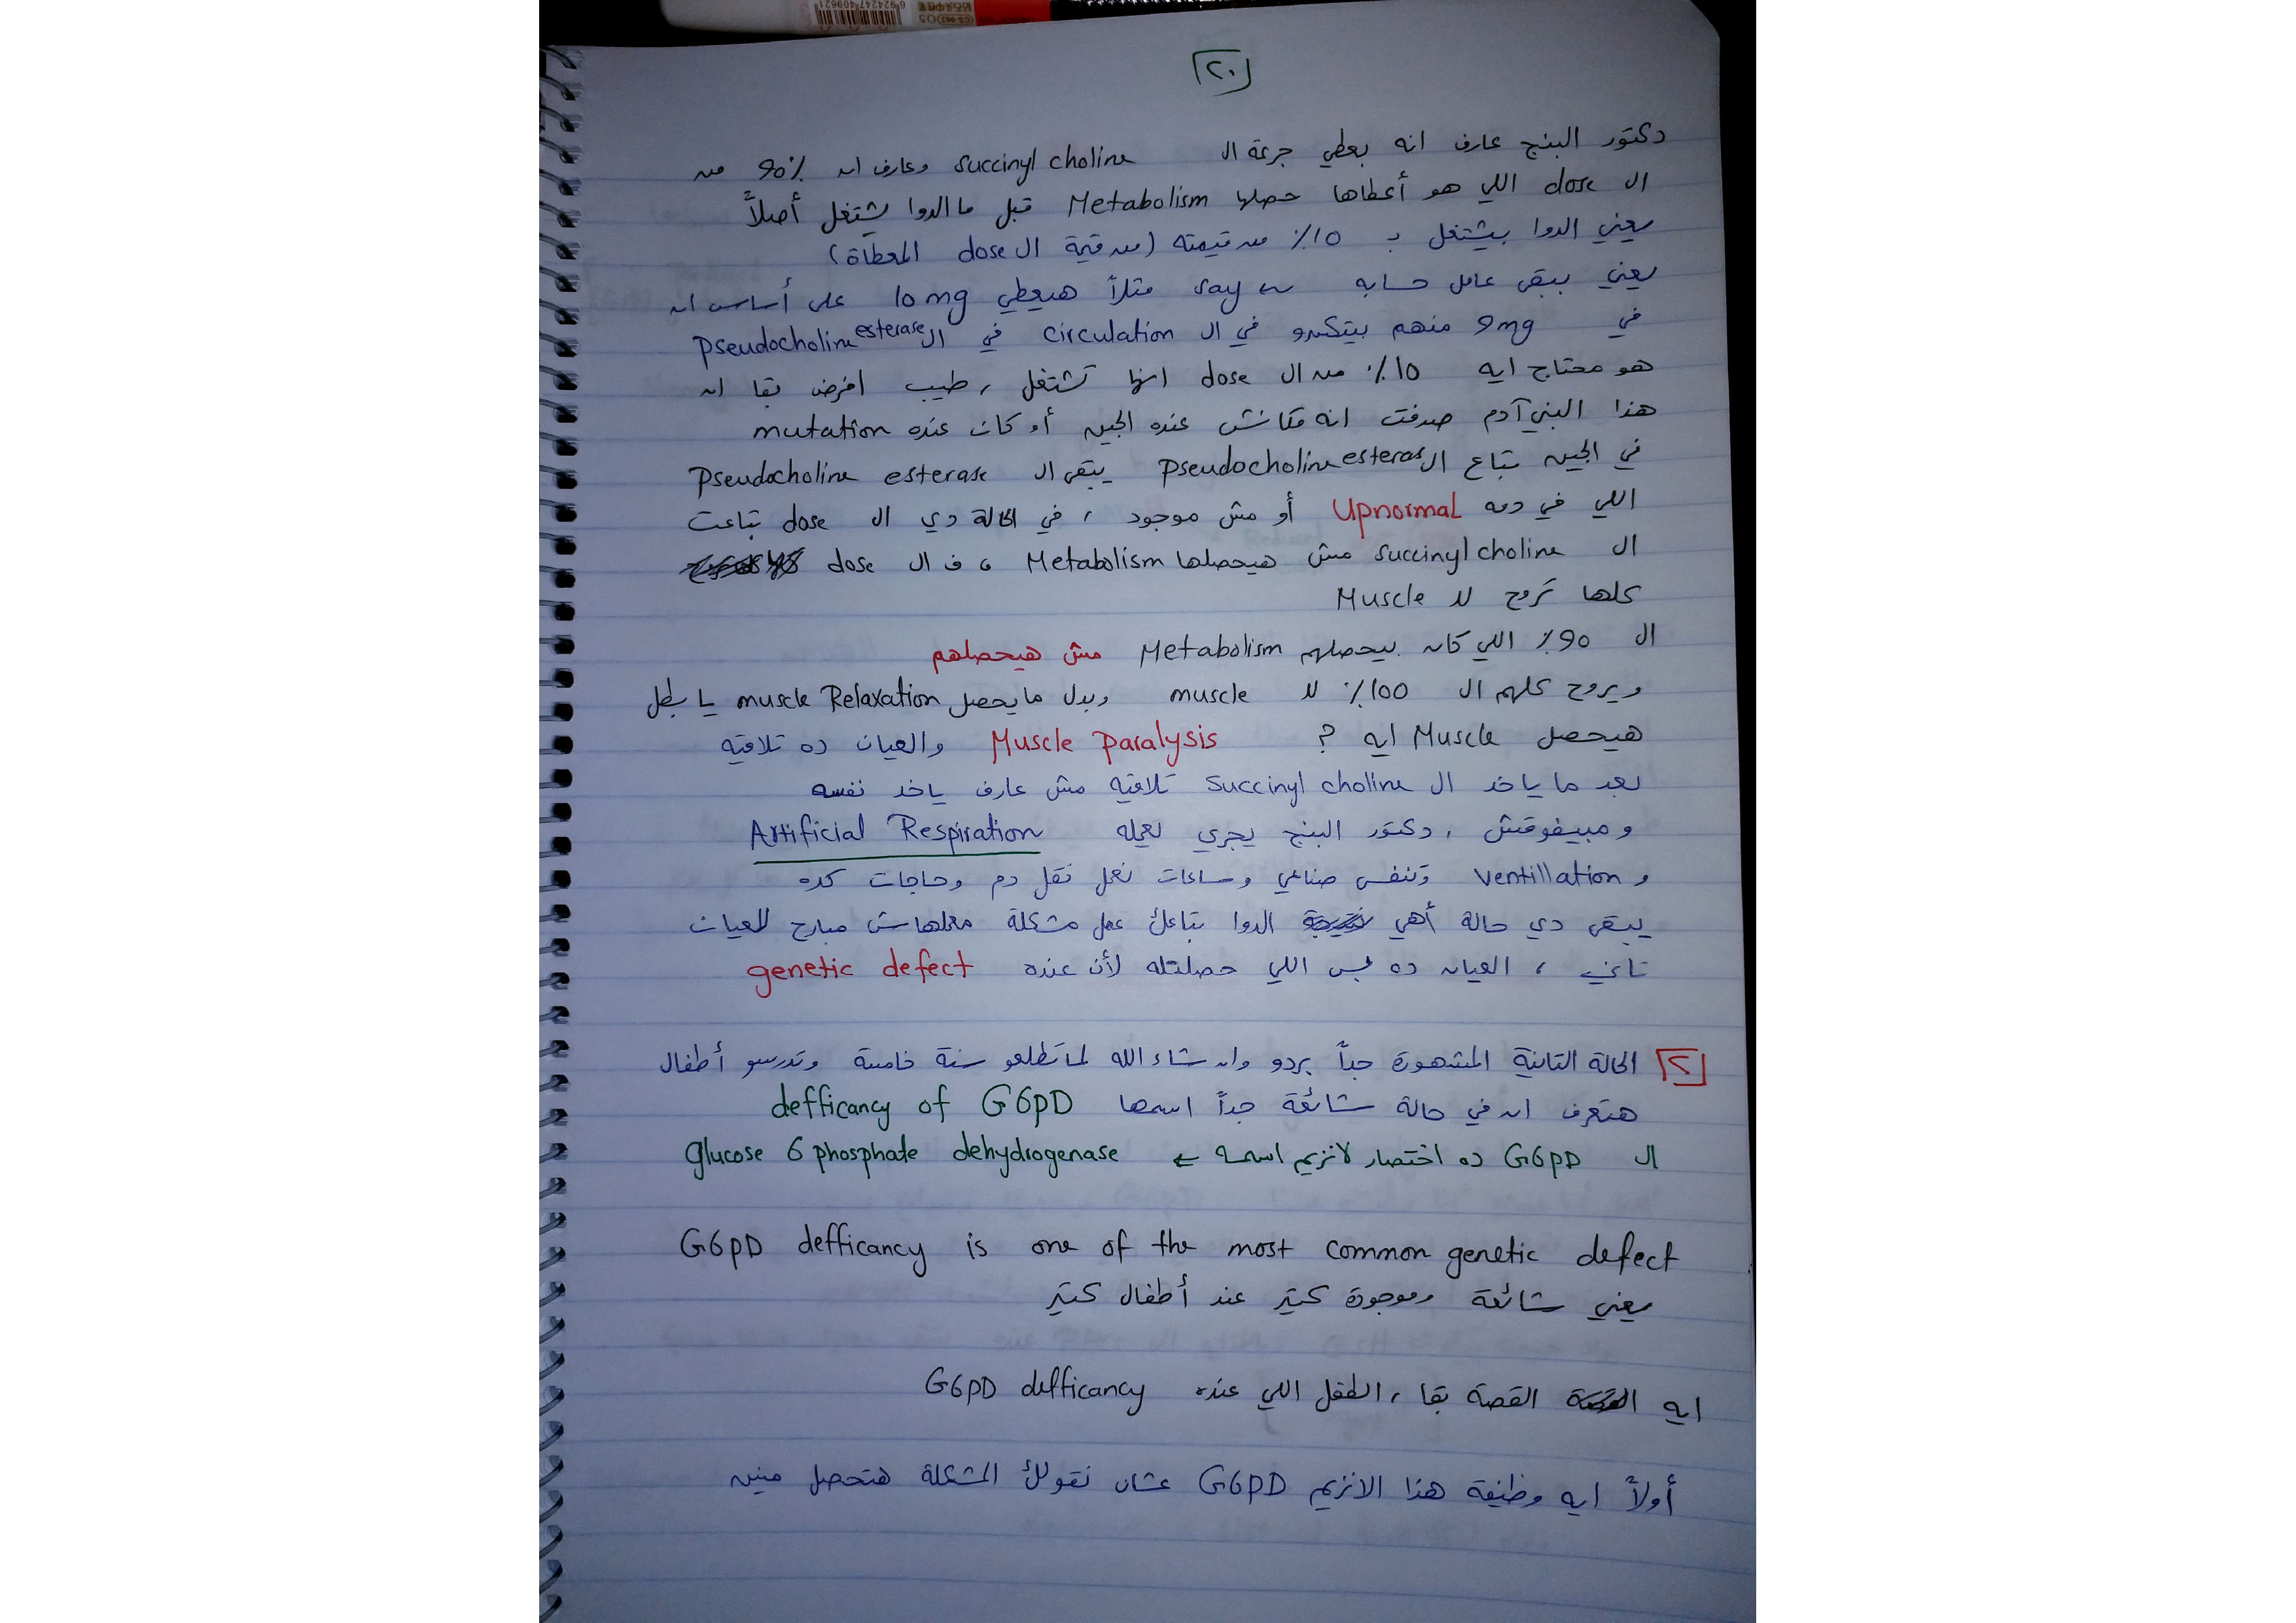 [٢٠]
دكتور البنج عارف انه بعطي جرعة ال succinyl choline وعارف ان 90% من
ال dose اللي هو أعطاها حصلها Metabolism قبل ما الدوا يشتغل أصلاً
يعني الدوا بيشتغل بـ 10% من قيمته (من قيمة ال dose المعطاة)
يعني بيبقى عامل حسابه say مثلاً هيعطي 10 mg على أساس ان
في 9mg منهم بيتكسرو في ال circulation في ال pseudocholine esterase
هو محتاج ايه 10% من ال dose انها تشتغل ، طيب افرض بقا ان
هذا البني آدم صدفت انه مكانش عنده الجين أو كان عنده mutation
في الجين بتاع ال pseudocholine esteras يبقى ال pseudocholine esterase
اللي في دمه upnormal أو مش موجود ، في الحالة دي ال dose بتاعت
ال succinyl choline مش هيحصلها Metabolism ، ف ال dose
كلها تروح لل Muscle
ال 90% اللي كان بيحصلهم Metabolism مش هيحصلهم
ويروح كلهم ال 100% لل muscle وبدل ما يحصل muscle Relaxation يا بطل
هيحصل Muscle ايه ? Muscle paralysis والعيان ده تلاقيه
بعد ما ياخد ال succinyl choline تلاقيه مش عارف ياخد نفسه
ومبيفوقش ، دكتور البنج يجري يعمله Artificial Respiration
و ventillation وتنفس صناعي وساعات نعمل نقل دم وحاجات كده
يبقى دي حالة أهي الدوا بتاعك عمل مشكلة معملهاش مبارح للعيان
تاني ، العيان ده بس اللي حصلتله لأن عنده genetic defect
[٢] الحالة التانية المشهورة جداً بردو وان شاء الله لما تطلعو سنة خامسة وتدرسو أطفال
هتعرف ان في حالة شائعة جداً اسمها defficancy of G6pD
ال G6pD ده اختصار لانزيم اسمه ← glucose 6 phosphate dehydrogenase
G6pD defficancy is one of the most common genetic defect
يعني شائعة وموجودة كتير عند أطفال كتير
ايه القصة بقا ، الطفل اللي عنده G6pD defficancy
أولاً ايه وظيفة هذا الانزيم G6pD عشان نقولك المشكلة هتحصل منين